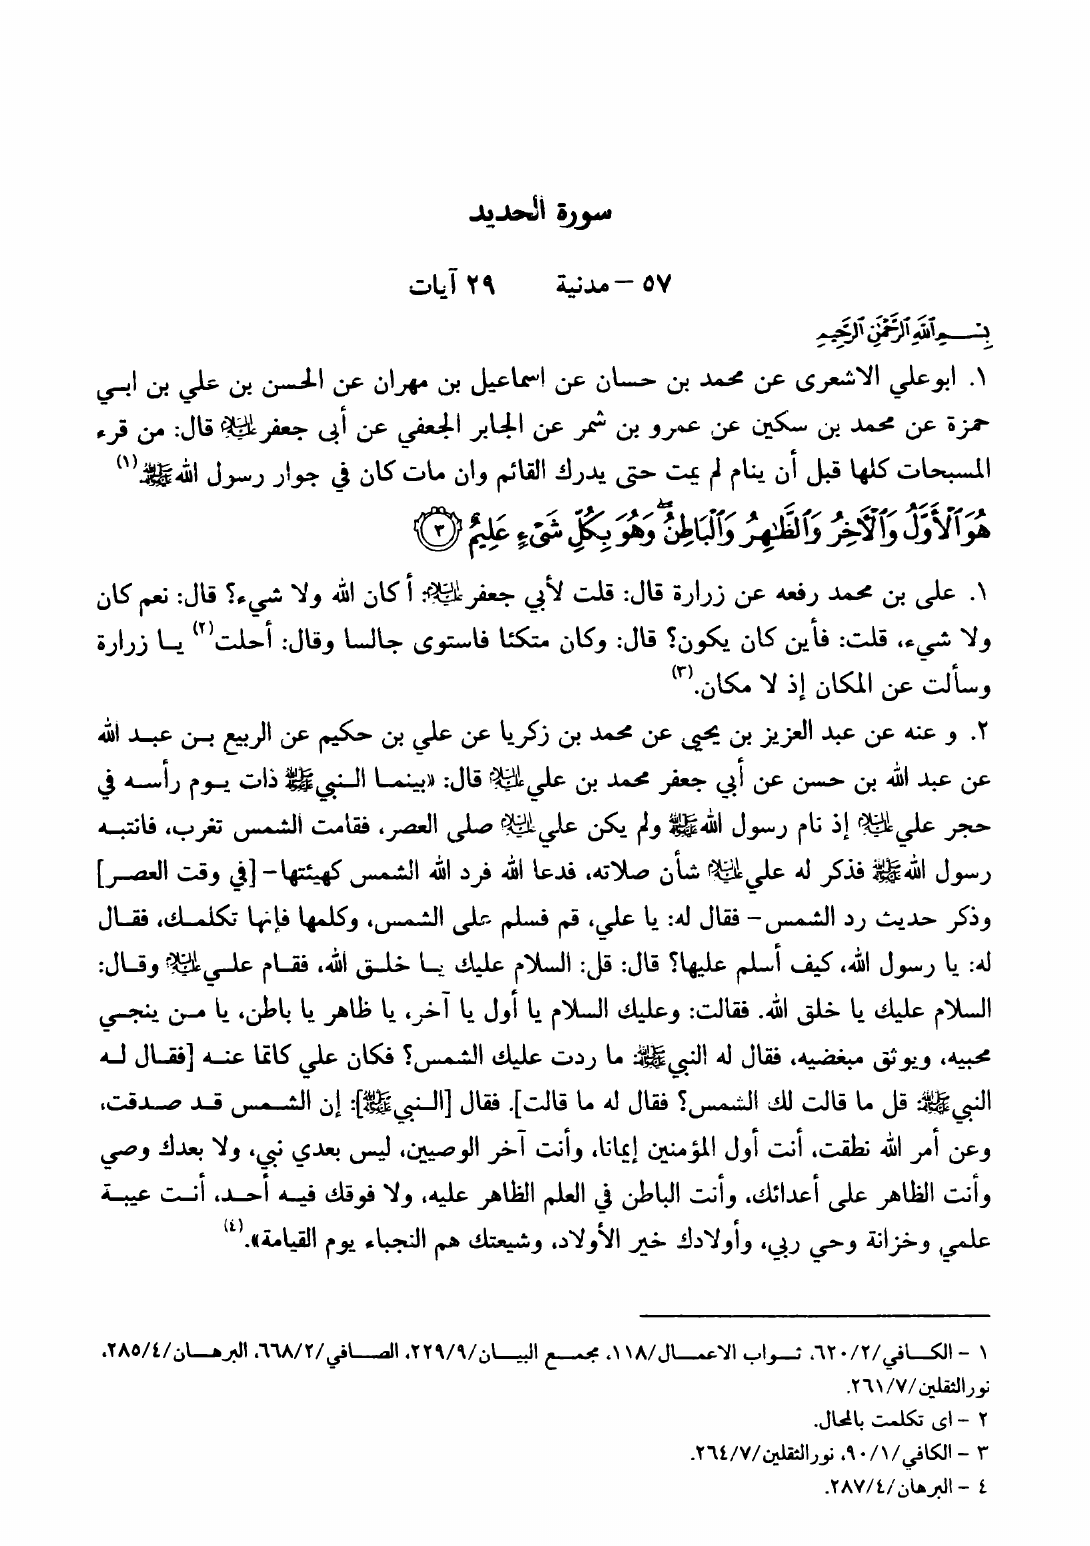 سورة الحديد
٥٧ – مدنية ٢٩ آيات
بِسْمِ اللَّهِ الرَّحْمَٰنِ الرَّحِيمِ
١. ابوعلي الاشعرى عن محمد بن حسان عن اسماعيل بن مهران عن الحسن بن علي بن ابي
حمزة عن محمد بن سكين عن عمرو بن شمر عن الجابر الجعفي عن أبى جعفر عليه السلام قال: من قرء
المسبحات كلها قبل أن ينام لم يمت حتى يدرك القائم وان مات كان في جوار رسول الله ﷺ (١)
هُوَ ٱلْأَوَّلُ وَٱلْآخِرُ وَٱلظَّـٰهِرُ وَٱلْبَاطِنُ ۖ وَهُوَ بِكُلِّ شَىْءٍ عَلِيمٌ ﴿٣﴾
١. على بن محمد رفعه عن زرارة قال: قلت لأبي جعفر عليه السلام: أكان الله ولا شيء؟ قال: نعم كان
ولا شيء، قلت: فأين كان يكون؟ قال: وكان متكئا فاستوى جالسا وقال: أحلت(٢) يا زرارة
وسألت عن المكان إذ لا مكان.(٣)
٢. و عنه عن عبد العزيز بن يحيى عن محمد بن زكريا عن علي بن حكيم عن الربيع بن عبد الله
عن عبد الله بن حسن عن أبي جعفر محمد بن علي عليه السلام قال: «بينما النبي ﷺ ذات يوم رأسه في
حجر علي عليه السلام إذ نام رسول الله ﷺ ولم يكن علي عليه السلام صلى العصر، فقامت الشمس تغرب، فانتبه
رسول الله ﷺ فذكر له علي عليه السلام شأن صلاته، فدعا الله فرد الله الشمس كهيئتها- [في وقت العصر]
وذكر حديث رد الشمس- فقال له: يا علي، قم فسلم على الشمس، وكلمها فإنها تكلمك، فقال
له: يا رسول الله، كيف أسلم عليها؟ قال: قل: السلام عليك يا خلق الله، فقام علي عليه السلام وقال:
السلام عليك يا خلق الله. فقالت: وعليك السلام يا أول يا آخر، يا ظاهر يا باطن، يا من ينجي
محبيه، ويوثق مبغضيه، فقال له النبي ﷺ: ما ردت عليك الشمس؟ فكان علي كاتما عنه [فقال له
النبي ﷺ: قل ما قالت لك الشمس؟ فقال له ما قالت]. فقال [النبي ﷺ]: إن الشمس قد صدقت،
وعن أمر الله نطقت، أنت أول المؤمنين إيمانا، وأنت آخر الوصيين، ليس بعدي نبي، ولا بعدك وصي
وأنت الظاهر على أعدائك، وأنت الباطن في العلم الظاهر عليه، ولا فوقك فيه أحد، أنت عيبة
علمي وخزانة وحي ربي، وأولادك خير الأولاد، وشيعتك هم النجباء يوم القيامة».(٤)
١ – الكافي/٦٢٠/٢، ثواب الاعمال/١١٨، مجمع البيان/٢٢٩/٩، الصافي/٦٦٨/٢، البرهان/٢٨٥/٤،
نورالثقلين/٢٦١/٧.
٢ – اى تكلمت بالمحال.
٣ – الكافي/٩٠/١، نورالثقلين/٢٦٤/٧.
٤ – البرهان/٢٨٧/٤.